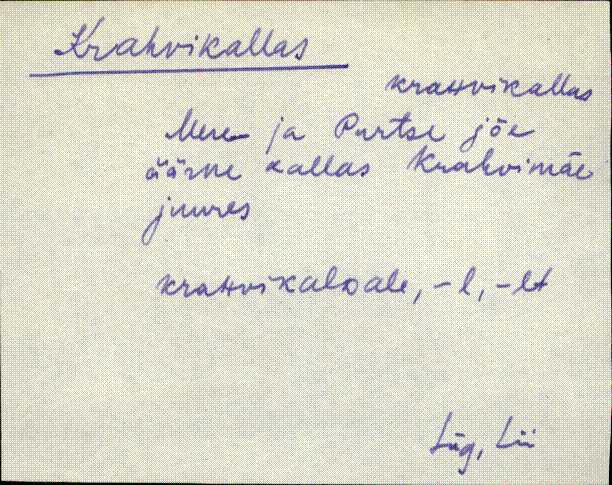 Krahvikallas
kraHvikallas
Mere ja Purtse jõe
äärne kallas Krahvimäe
juures
kraHvikaLDale, -l, -lt
Lüg, Lii